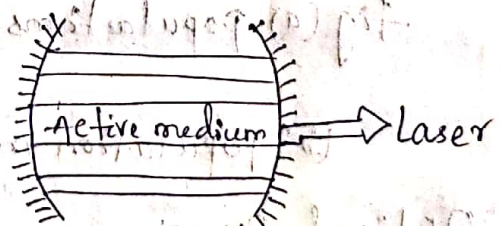 Active medium
Laser